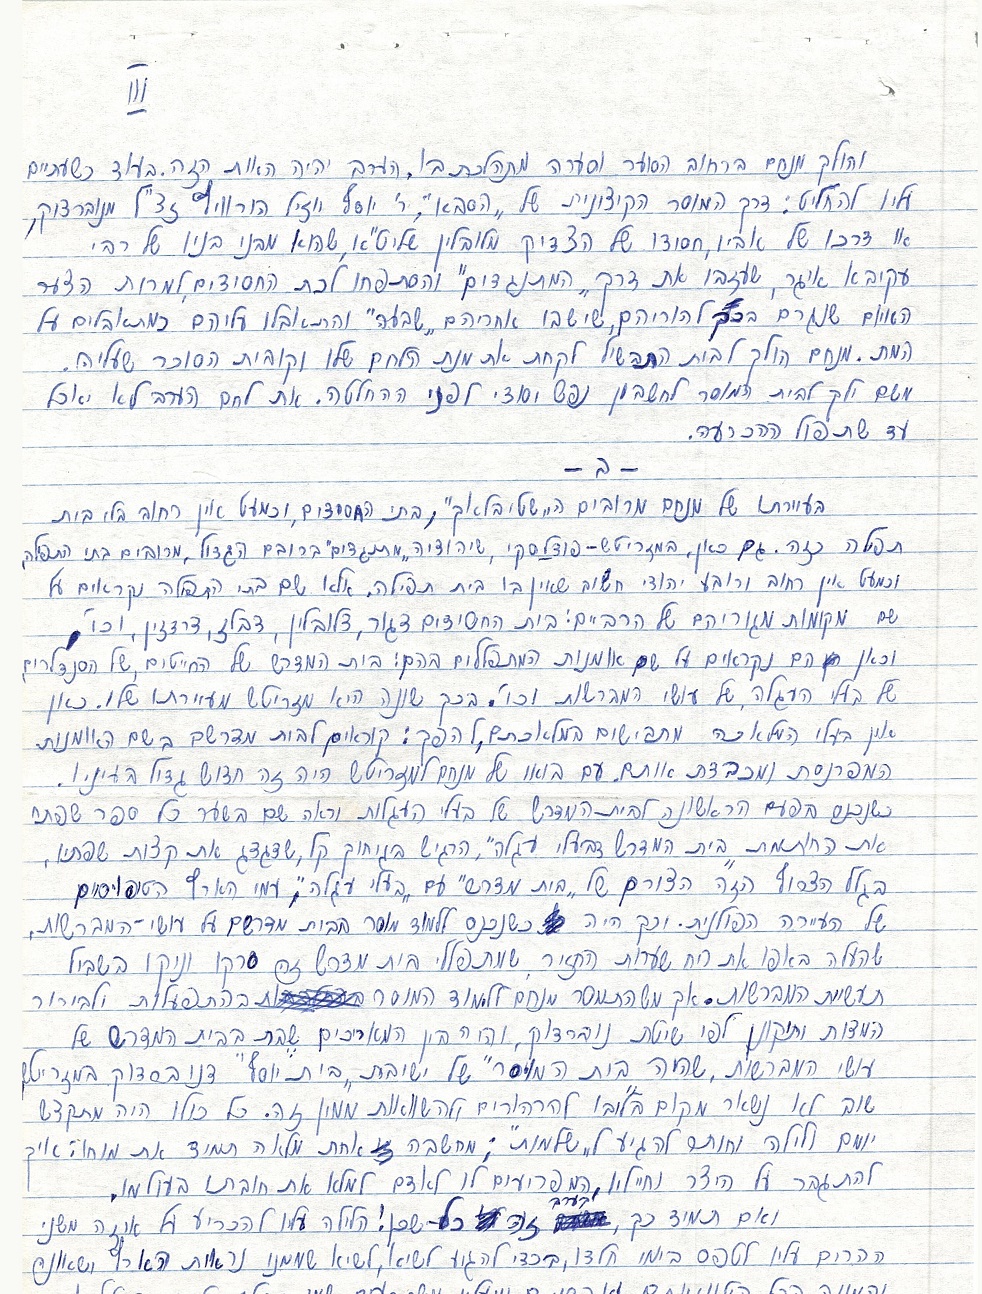 III
והולך מנחם ברחוב הסוער וסערה מתהלכת בו, הערב יהיה האות הזה. בעוד כשעתיים
עליו להחליט: דרך המוסר הקיצונית של „הסבא", ר' יוסף יוזל הורוויץ זצ"ל מנוברדוק,
או דרכו של אביו, חסודו של הצדיק מלובלין שליט"א, שהוא מבני בניו של רבי
עקיבא איגר, שעזבו את דרך „המתנגדים" והסתפחו לכת החסידים, למרות הצער
האיום שנגרם בכך להוריהם, שישבו אחריהם „שבעה" והתאבלו עליהם כמתאבלים על
המת. מנחם הולך לבית התבשיל לקחת את מנת הלחם שלו וקובית הסוכר שעליה.
משם ילך לבית המוסר לחשבון נפש יסודי לפני ההחלטה. את לחם הערב לא יאכל
עד שתפול ההכרעה.
– ב –
בעיירתו של מנחם מרובים ה„שטיבלאך", בתי החסידים, וכמעט אין רחוב בלי בית
תפילה כזה. גם כאן, במזריטש-פודלסקי, שיהודיה „מתנגדים" ברובם הגדול, מרובים בתי התפילה,
וכמעט אין רחוב ורובע יהודי חשוב שאין בו בית תפילה. אלא שם בתי התפילה נקראים על
שם מקומות מגוריהם של הרביים: בית החסידים דגור, דלובלין, דבלז, דרדזין, וכו',
וכאן הם נקראים על שם אומנות המתפללים בהם: בית המדרש של החייטים, של הסנדלרים
של בעלי העגלה, של עושי המברשות וכו'. בכך שונה היא מזריטש מעיירתו שלו. כאן
אין בעלי המלאכה מתביישים במלאכתם, להפך: קוראים לבית מדרשם בשם האומנות
המפרנסת ומכבדת אותם. עם בואו של מנחם למזריטש היה זה חדוש גדול בעיניו.
כשנכנס בפעם הראשונה לבית-המדרש של בעלי העגלות וראה שם בשער כל ספר שפתח
את החותמת בית המדרש דבעלי עגלה", הרגיש בגיחוך קל, שדגדג את קצות שפתיו,
בגלל הצרוף הזה הצורם של „בית מדרש" עם „בעלי עגלה", עמי הארץ הטיפוסים
של העיירה הפולנית. וכך היה כשנכנס ללמוד מוסר בבית מדרשם של עושי-המברשות,
שהעלה באפו את ריח שערות החזיר, שמתפללי בית מדרש זה סרקו וניקו בשביל
תעשית המברשות. אך משהתמסר מנחם ללמוד המוסר בהתפעלות ולבירור
המדות ותיקונן לפי שיטת נוברדוק, והיה בין המאריכים שבת בבית המדרש של
עושי המברשות, שהיה בית המוסר" של ישיבת „בית יוסף" דנובהרדוק במזריטש
שוב לא נשאר מקום בלבו להרהורים ולהשוואות ממין זה. כל כולו היה מתקדש
יומם ולילה וחותר להגיע ל„שלמות"; מחשבה אחת מלאה תמיד את מוחו: איך
להתגבר על היצר וחייליו, המפריעים לו לאדם למלא את חובתו בעולמו.
ואם תמיד כך, בערב זה כל-שכן! הלילה עליו להכריע על איזה משני
ההרים עליו לטפס בימי חלדו, בכדי להגיע לשיאו, לשיא שממנו נראות הארץ ושאונה